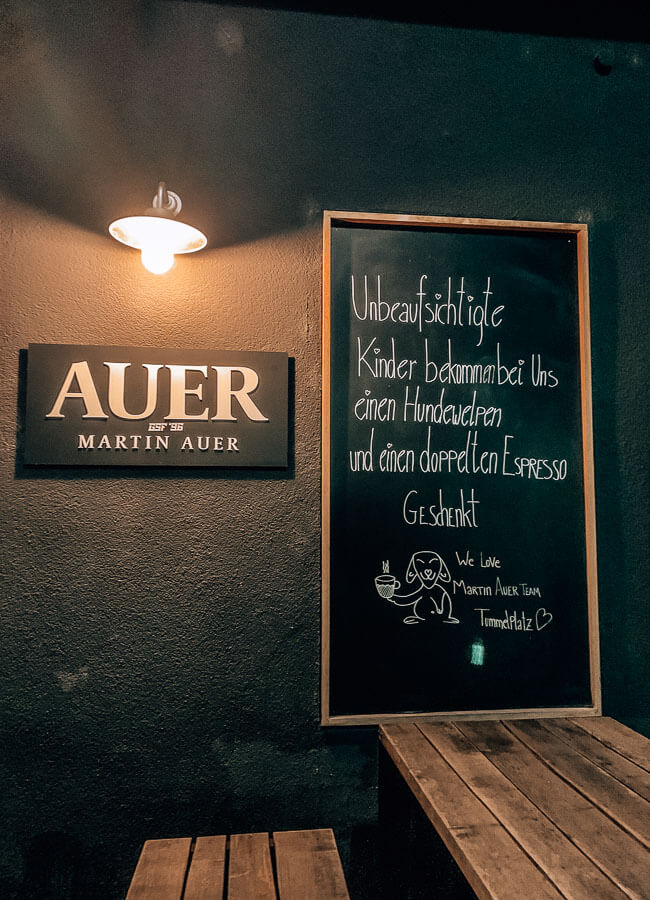 AUER
GSF '96
MARTIN AUER
Unbeaufsichtigte
Kinder bekommen bei Uns
einen Hundewelpen
und einen doppelten Espresso
Geschenkt
We Love
Martin Auer Team
Tummelplatz